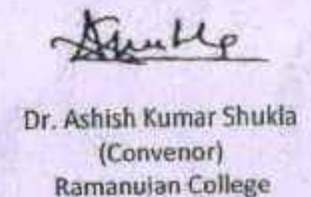 Dr. Ashish Kumar Shukla
(Convenor)
Ramanujan College